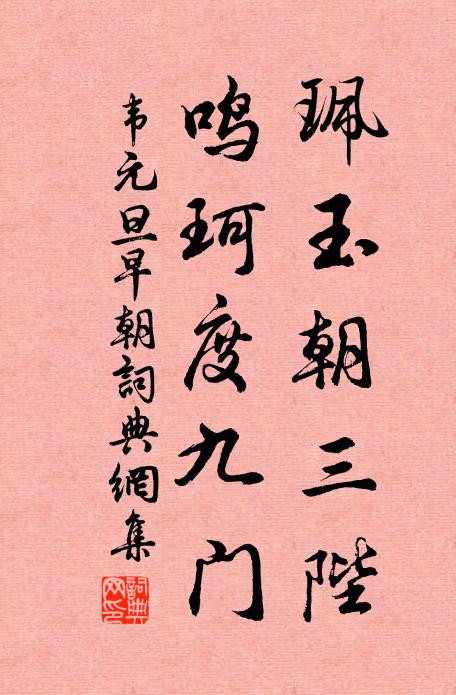 珮玉朝三陛
鸣珂度九门
韦元旦早朝詞典網集
詞典网印